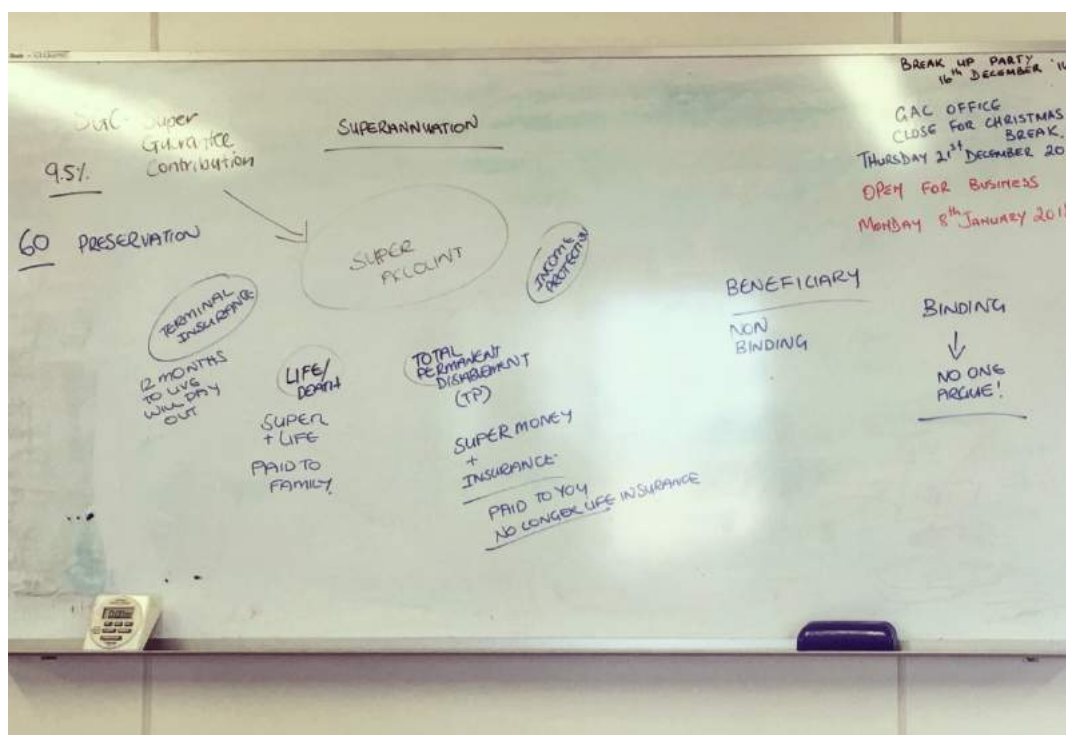 SGC- Super
Guarantee
Contribution
9.5%
60 PRESERVATION
SUPERANNUATION
SUPER
ACCOUNT
INCOME
PROTECTION
TERMINAL
INSURANCE
12 MONTHS
TO LIVE
WILL PAY
OUT
LIFE/
DEATH
SUPER
+ LIFE
PAID TO
FAMILY
TOTAL
PERMANENT
DISABLEMENT
(TP)
SUPER MONEY
+
INSURANCE
PAID TO YOU
NO LONGER LIFE INSURANCE
BENEFICIARY
NON
BINDING
BINDING
↓
NO ONE
ARGUE!
BREAK UP PARTY
16th DECEMBER
GAC OFFICE
CLOSE FOR CHRISTMAS
BREAK
THURSDAY 21st DECEMBER 20
OPEN FOR BUSINESS
MONDAY 8th JANUARY 201